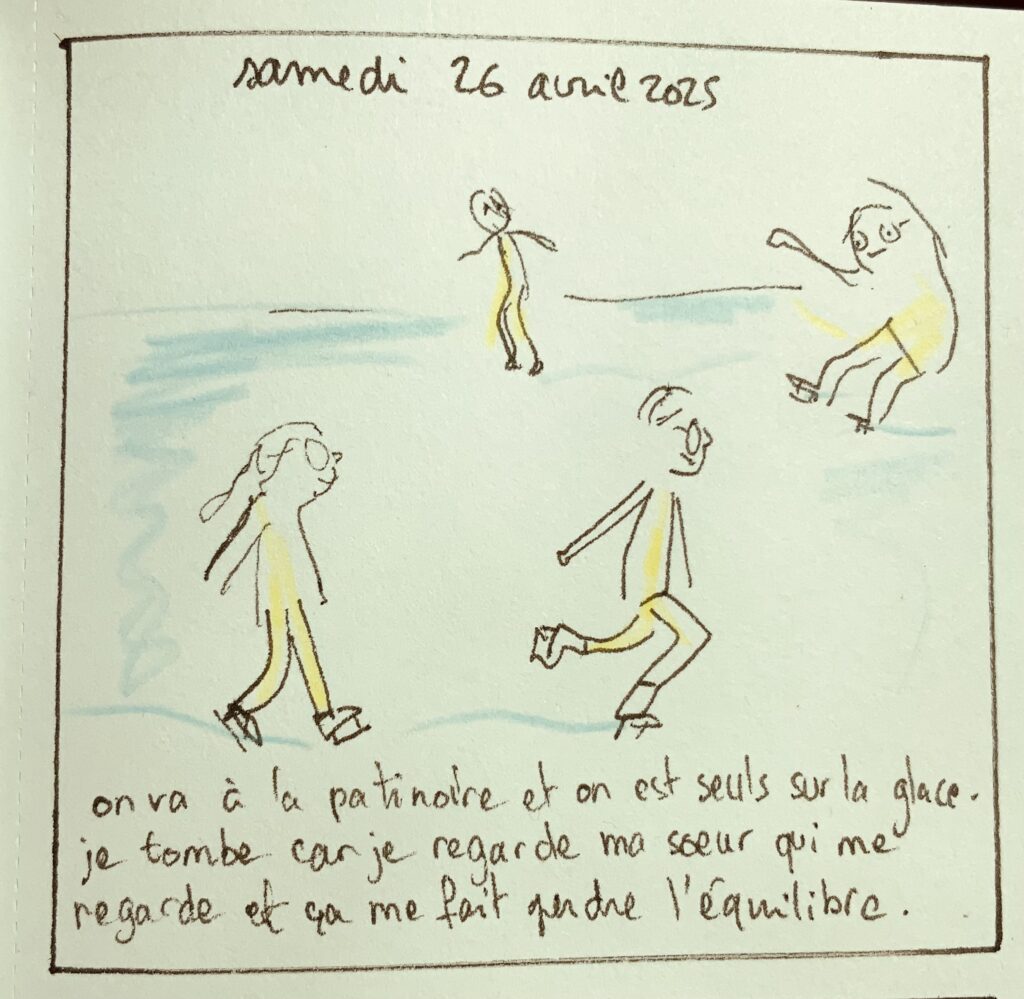 samedi 26 avril 2025
on va à la patinoire et on est seuls sur la glace.
je tombe car je regarde ma soeur qui me
regarde et ça me fait perdre l'équilibre.